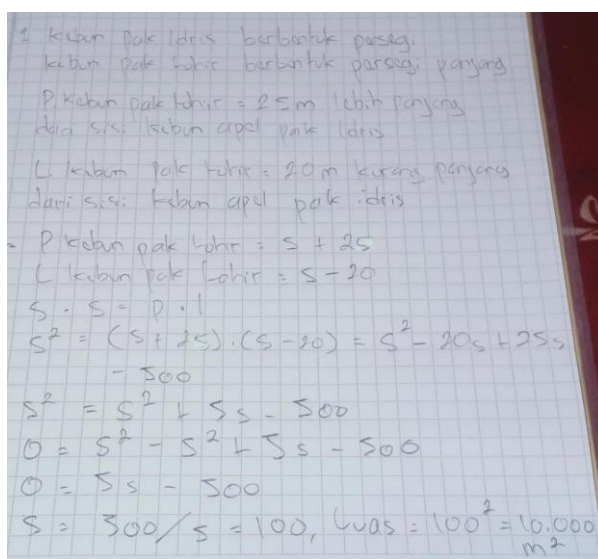 1 kebun pak Idris berbentuk persegi.
kebun pak tohir berbentuk persegi panjang
P. kebun pak tohir = 25m lebih panjang
dari sisi kebun apel pak Idris
L kebun pak tohir = 20m kurang panjang
dari sisi kebun apel pak idris
- P kebun pak tohir = s + 25
L kebun pak tohir = s - 20
s . s = p . l
s² = (s + 25) . (s - 20) = s² - 20s + 25s
- 500
s² = s² + 5s - 500
0 = s² - s² + 5s - 500
0 = 5s - 500
s = 500/5 = 100, Luas = 100² = 10.000
m²